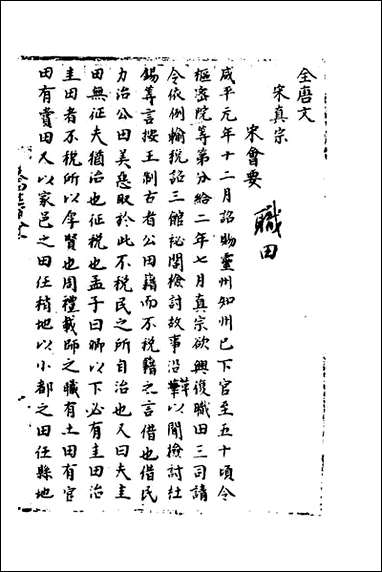 全唐文
宋真宗
宋會要
職田
咸平元年十二月詔物靈州知州已下官至五十頃令
樞密院等第分給二年七月真宗欲興復職田三司請
令依例輸税詔三館祕閣檢討故事沿革以聞檢討杜
鎬等言按王制古者公田籍而不税籍之言借也借民
力治公田美惡取於此不税民之所自治也又曰夫圭
田無征夫猶治也征税也孟子曰卿以下必有圭田治
圭田者不税所以厚賢也周禮載師之職有士田有官
田有賞田又以家邑之田任稍地以小都之田任縣地